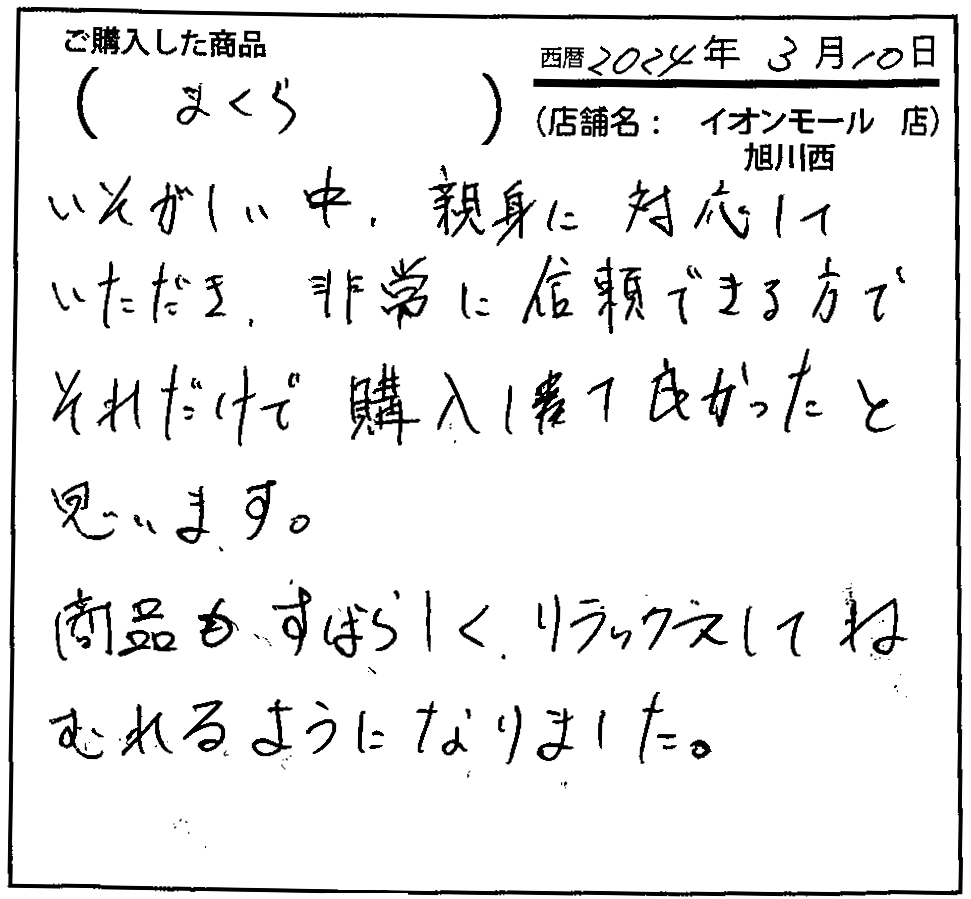 ご購入した商品
( まくら )
西暦2024年 3月10日
(店舗名： イオンモール 店)
旭川西
いそがしい中、親身に対応して
いただき、非常に信頼できる方で
それだけで購入して良かったと
思います。
商品もすばらしく、リラックスしてね
むれるようになりました。